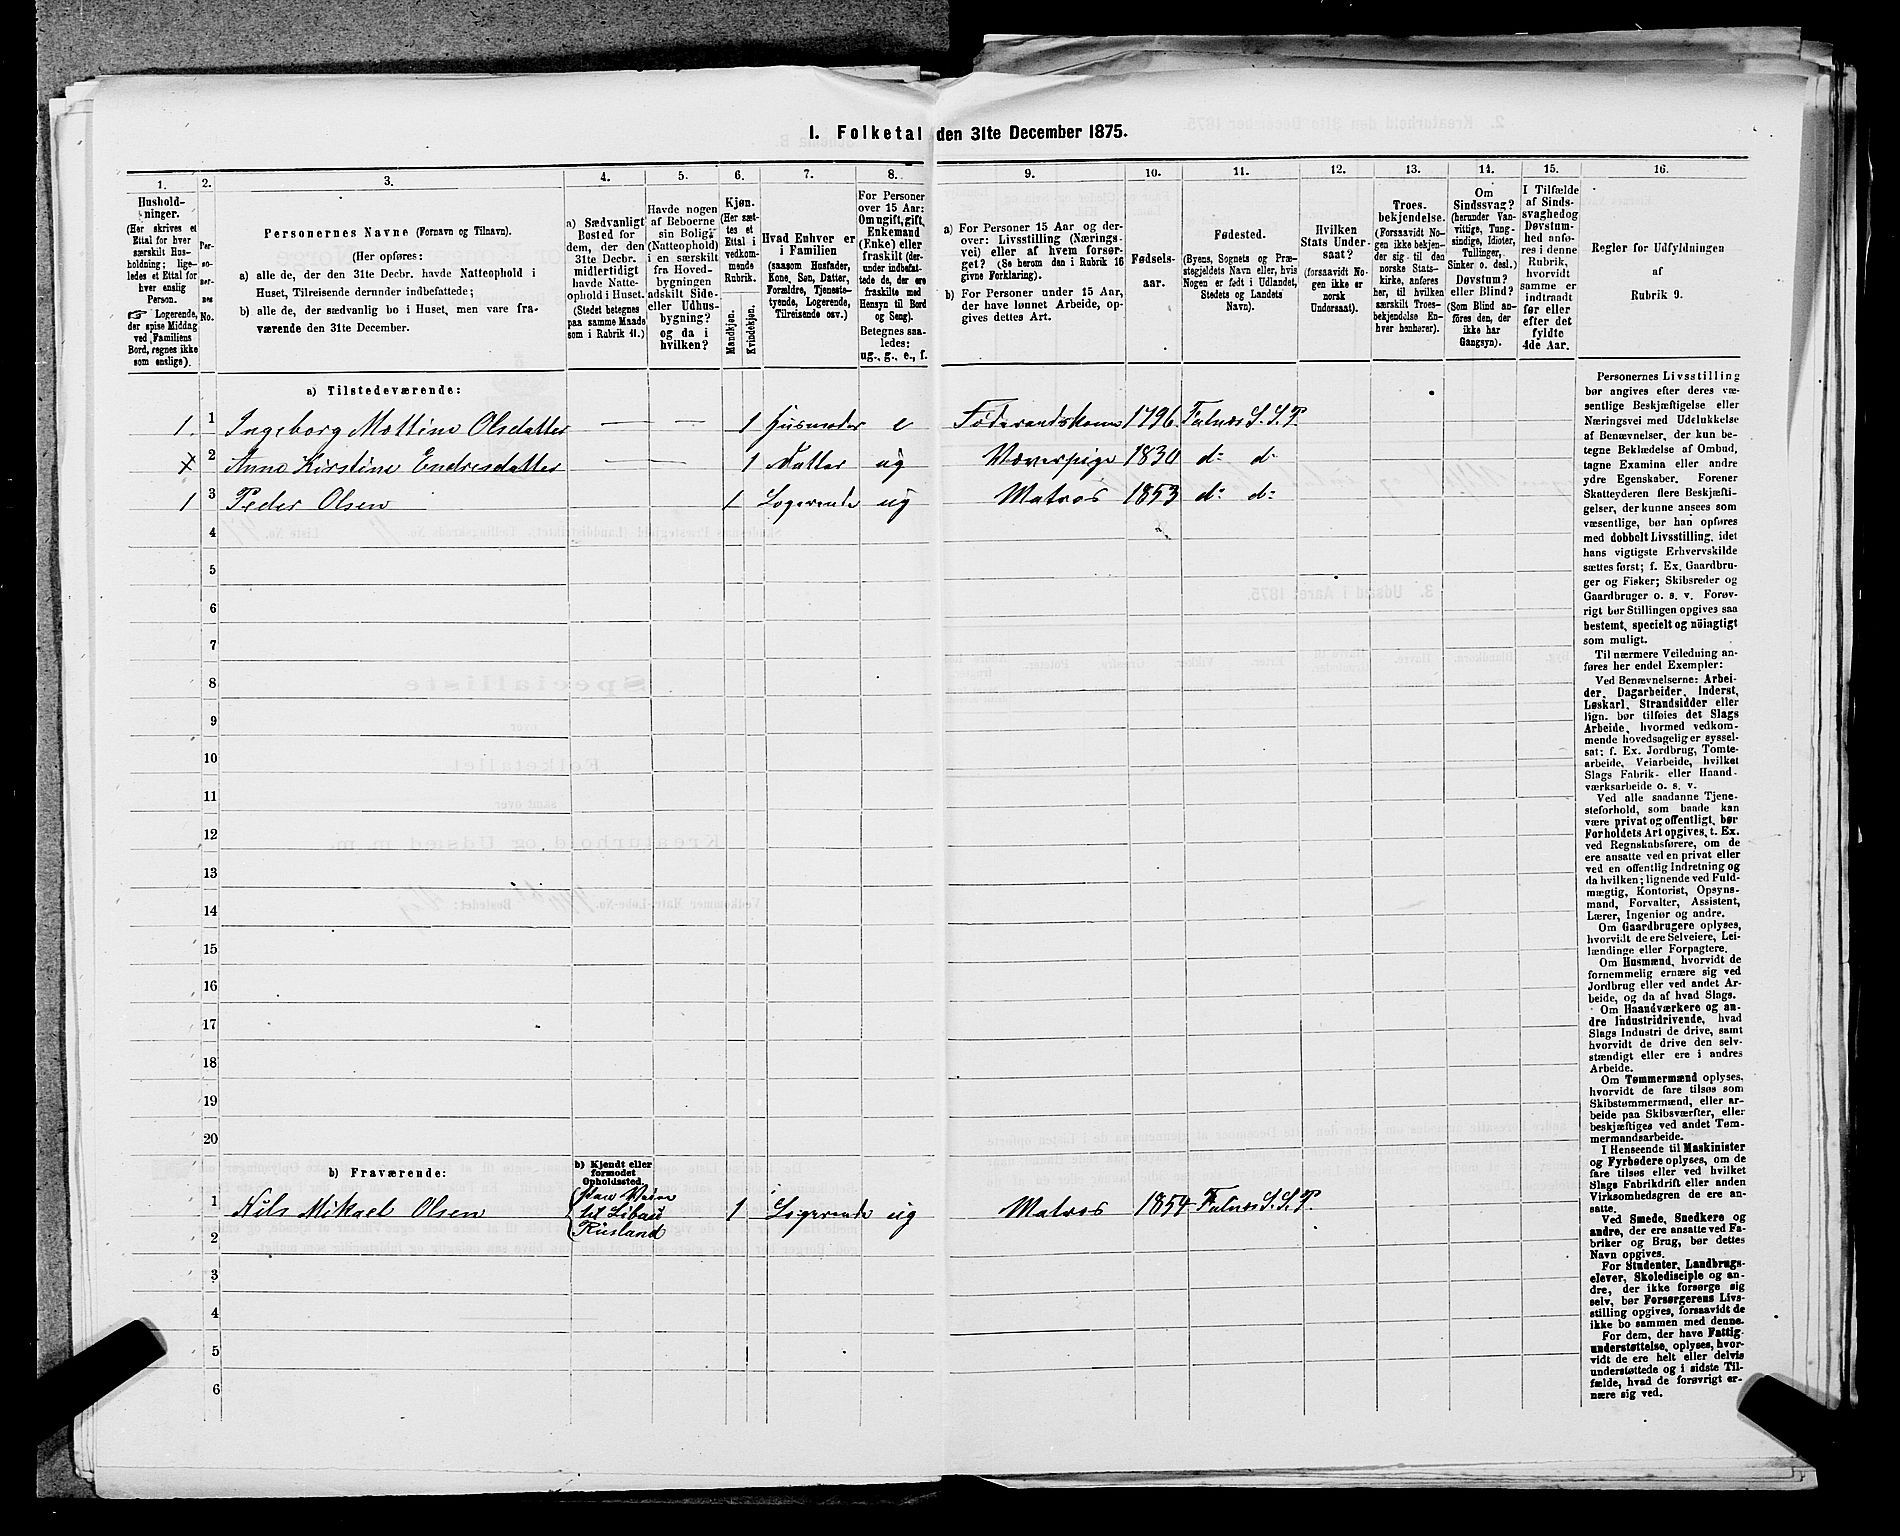 1. Folketal den 31te December 1875.
1.
2.
3.
4.
5.
6.
7.
8.
9.
10.
11.
12.
13.
14.
15.
16.
Hushold-
ninger.
(Her skrives et
Ettal for hver
særskilt Hus-
holdning; lige-
ledes et Ettal for
hver enslig
Person.
☞ Logerende,
der spise Middag
ved Familiens
Bord, regnes ikke
som enslige).
Per-
so-
ner-
nes
No.
Personernes Navne (Fornavn og Tilnavn).
(Her opføres:
a) alle de, der den 31te Decbr. havde Natteophold i
Huset, Tilreisende derunder indbefattede;
b) alle de, der sædvanlig bo i Huset, men vare fra-
værende den 31te December.
a) Sædvanligt
Bosted for
dem, der den
31te Decbr.
midlertidigt
havde Natte-
ophold i Huset.
(Stedet betegnes
paa samme Maade
som i Rubrik 11.)
Havde nogen
af Beboerne
sin Bolig
(Natteophold)
i en særskilt
fra Hoved-
bygningen
adskilt Side-
eller Udhus-
bygning?
og da i
hvilken?
Kjøn.
(Her sæt-
tes et
Ettal i
vedkom-
mende
Rubrik.
Mandkjøn.
Kvindekjøn.
Hvad Enhver er
i Familien
(saasom Husfader,
Kone, Søn, Datter,
Forældre, Tjeneste-
tyende, Logerende,
Tilreisende osv.)
For Personer
over 15 Aar:
Om ugift, gift,
Enkemand
(Enke) eller
fraskilt (der-
under indbefat-
tede de, der ere
fraskilte med
Hensyn til Bord
og Seng).
Betegnes saa-
ledes:
ug., g., e., f.
a) For Personer 15 Aar og der-
over: Livsstilling (Nærings-
vei) eller af hvem forsør-
get? (Se herom den i Rubrik 16
givne Forklaring).
b) For Personer under 15 Aar,
der have lønnet Arbeide, op-
gives dettes Art.
Fødsels-
aar.
Fødested.
(Byens, Sognets og Præ-
stegjeldets Navn eller, hvis
Nogen er født i Udlandet,
Stedets og Landets
Navn).
Hvilken
Stats Under-
saat?
(forsaavidt No-
gen ikke er
norsk
Undersaat).
Troes-
bekjendelse.
(Forsaavidt No-
gen ikke bekjen-
der sig til den
norske Stats-
kirke, anføres
her, til hvilken
særskilt Troes-
bekjendelse En-
hver henhører).
Om
Sindssvag?
(herunder Van-
vittige, Tung-
sindige, Idioter,
Tullinger,
Sinker o. desl.)
Døvstum?
eller Blind?
(Som Blind an-
føres den, der
ikke har
Gangsyn).
I Tilfælde
af Sinds-
svaghed og
Døvstum-
hed anfø-
res i denne
Rubrik,
hvorvidt
samme er
indtraadt
før eller
efter det
fyldte
4de Aar.
Regler for Udfyldningen
af
Rubrik 9.
a) Tilstedeværende:
1. 1 Ingeborg Mattine Olsdatter — — 1 Husmoder e Föderaadskone 1796 Falnæs S. S. P.
2 Anna Kirstine Endresdatter — — 1 Datter ug Væverpige 1830 d: d:
1 3 Peder Olsen 1 Logerende ug Matros 1853 d: d:
4
5
6
7
8
9
10
11
12
13
14
15
16
17
18
19
20
b) Fraværende:
b) Kjendt eller
formodet
Opholdssted.
1 Nils Mikael Olsen 1 Logerende ug Matros 1854 Falnæs S. S. P.
til Libau
Rusland
2
3
4
5
6
Personernes Livsstilling
bør angives efter deres væ-
sentlige Beskjæftigelse eller
Næringsvei med Udelukkelse
af Benævnelser, der kun be-
tegne Beklædelse af Ombud,
tagne Examina eller andre
ydre Egenskaber. Forener
Skatteyderen flere Beskjæfti-
gelser, der kunne ansees som
væsentlige, bør han opføres
med dobbelt Livsstilling, idet
hans vigtigste Erhvervskilde
sættes først; f. Ex. Gaardbru-
ger og Fisker; Skibsreder og
Gaardbruger o. s. v. Forøv-
rigt bør Stillingen opgives saa
bestemt, specielt og nöiagtigt
som muligt.
Til nærmere Veiledning an-
føres her endel Exempler:
Ved Benævnelserne: Arbei-
der, Dagarbeider, Inderst,
Løskarl, Strandsidder eller
lign. bør tilføies det Slags
Arbeide, hvormed vedkom-
mende hovedsagelig er syssel-
sat; f. Ex. Jordbrug, Tomte-
arbeide, Veiarbeide, hvilket
Slags Fabrik- eller Haand-
værksarbeide o. s. v.
Ved alle saadanne Tjene-
steforhold, som baade kan
være privat og offentligt, bør
Forholdets Art opgives, t. Ex.
ved Regnskabsførere, om de
ere ansatte ved en privat eller
ved en offentlig Indretning og
da hvilken; lignende ved Fuld-
mægtig, Kontorist, Opsyns-
mand, Forvalter, Assistent,
Lærer, Ingeniør og andre.
Om Gaardbrugere oplyses,
hvorvidt de ere Selveiere, Lei-
lændinge eller Forpagtere.
Om Husmænd, hvorvidt de
fornemmelig ernære sig ved
Jordbrug eller ved andet Ar-
beide, og da af hvad Slags.
Om Haandværkere og an-
dre Industridrivende, hvad
Slags Industri de drive, samt
hvorvidt de drive den selv-
stændigt eller ere i andres
Arbeide.
Om Tømmermænd oplyses,
hvorvidt de fare tilsøs som
Skibstømmermænd, eller ar-
beide paa Skibsværfter, eller
beskjæftiges ved andet Tøm-
mermandsarbeide.
I Henseende til Maskinister
og Fyrbødere oplyses, om de
fare tilsøs eller ved hvilket
Slags Fabrikdrift eller anden
Virksomhedsgren de ere an-
satte.
Ved Smede, Snedkere og
andre, der ere ansatte ved Fa-
briker og Brug, bør dettes
Navn opgives.
For Studenter, Landbrugs-
elever, Skoledisciple og an-
dre, der ikke forsørge sig
selv, bør Forsørgerens Livs-
stilling opgives, forsaavidt de
ikke bo sammen med denne.
For dem, der have Fattig-
understøttelse, oplyses, hvor-
vidt de ere helt eller delvis
understøttede og i sidste Til-
fælde, hvad de forøvrigt er-
nære sig ved.